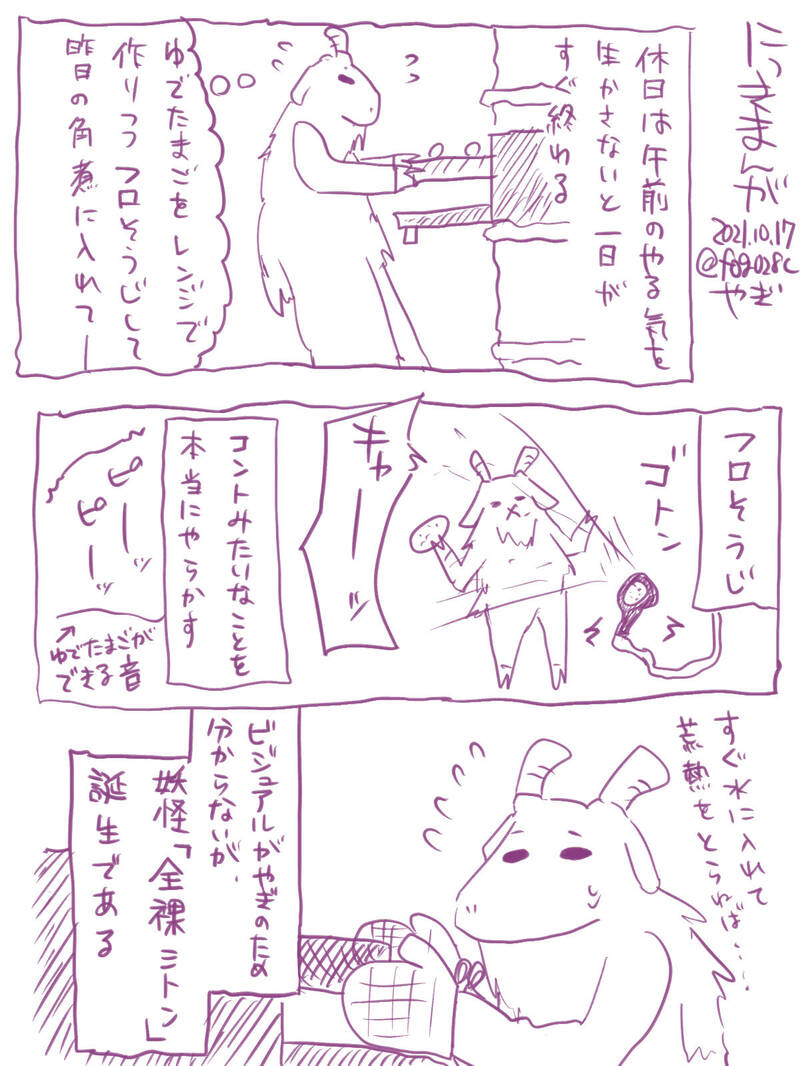 にっきまんが
2021.10.17
@fog028c
やぎ
休日は午前のやる気を
生かさないと一日が
すぐ終わる
ゆでたまごをレンジで
作りつつフロそうじして
昨日の角煮に入れてー
フロそうじ
ゴトン
キャーッ
コントみたいなことを
本当にやらかす
ピーッ
ピーッ
↑ゆでたまごが
できる音
すぐ水に入れて
荒熱をとらねば…
ビジュアルがやぎのため
分からないが、
妖怪「全裸ミトン」
誕生である